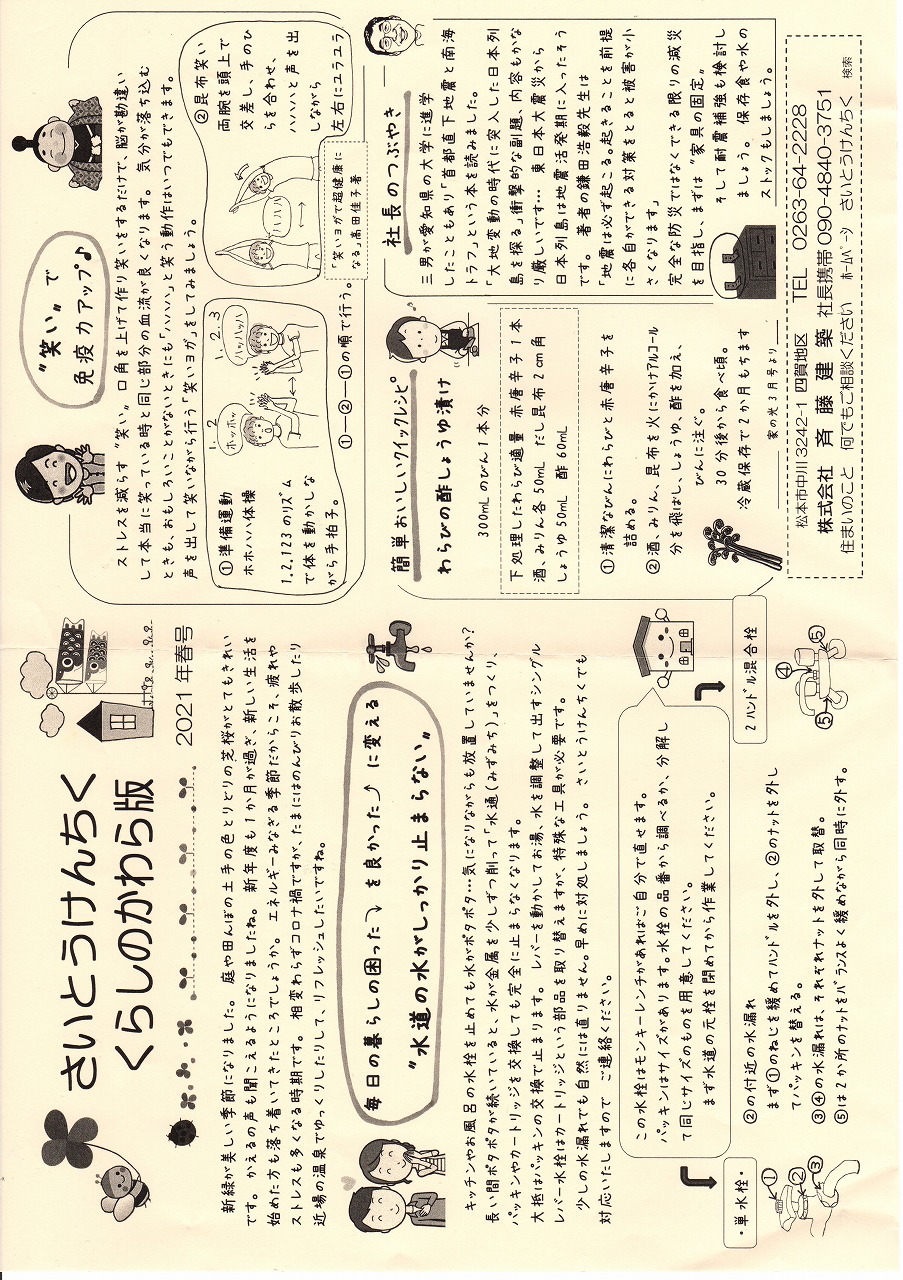 さいとうけんちく
くらしのかわら版
2021 年春号
新緑が美しい季節になりました。 庭や田んぼの土手の色とりどりの芝桜がとてもきれい
です。 かえるの声も聞こえるようになりましたね。 新年度も1か月が過ぎ、新しい生活を
始めた方も落ち着いてきたところでしょうか。 エネルギーみなぎる季節だからこそ、疲れや
ストレスも多くなる時期です。 相変わらずコロナ禍ですが、たまにはのんびりお散歩したり
近場の温泉でゆっくりしたりして、リフレッシュしたいですね。
毎日の暮らしの困った⤵ を良かった⤴ に変える
〝水道の水がしっかり止まらない〟
キッチンやお風呂の水栓を止めても水がポタポタ…気になりながらも放置していませんか?
長い間ポタポタが続いていると、水が金属を少しずつ削って「水通(みずみち)」をつくり、
パッキンやカートリッジを交換しても完全に止まらなくなります。
大抵はパッキンの交換で止まります。 レバーを動かしてお湯、水を調整して出すシングル
レバー水栓はカートリッジという部品を取り替えますが、特殊な工具が必要です。
少しの水漏れでも自然には直りません。早めに対処しましょう。 さいとうけんちくでも
対応いたしますので ご連絡ください。
この水栓はモンキーレンチがあればご自分で直せます。
パッキンはサイズがあります。水栓の品番から調べるか、分解し
て同じサイズのものを用意してください。
まず水道の元栓を閉めてから作業してください。
・単水栓・
①
②
③
②の付近の水漏れ
まず①のねじを緩めてハンドルを外し、②のナットを外し
てパッキンを替える。
③④の水漏れは、それぞれナットを外して取替。
⑤は2か所のナットをバランスよく緩めながら同時に外す。
2ハンドル混合栓
④
⑤ ⑤
〝笑い〟で
免疫力アップ♪
ストレスを減らす〝笑い〟口角を上げて作り笑いをするだけで、脳が勘違い
して本当に笑っている時と同じ部分の血流が良くなります。 気分が落ち込む
ときも、おもしろいことがないときにも「ハハハ」と笑う動作はいつでもできます。
声を出して笑いながら行う「笑いヨガ」をしてみましょう。
①準備運動
ホホハハ体操
1.2.123 のリズム
で体を動かしな
がら手拍子。
1. 2
ホッホッ
1. 2. 3
ハッハッハ
ハハハ
②昆布笑い
両腕を頭上で
交差し、手のひ
らを合わせ、
ハハハと声を出
しながら
左右にユラユラ
①―②―①の順で行う。
「笑いヨガで超健康に
なる」高田佳子著
簡単おいしいクイックレシピ
わらびの酢しょうゆ漬け
300mL のびん1本分
下処理したわらび適量 赤唐辛子1本
酒、みりん各50mL だし昆布2cm角
しょうゆ50mL 酢60mL
①清潔なびんにわらびと赤唐辛子を
詰める。
②酒、みりん、昆布を火にかけアルコール
分を飛ばし、しょうゆ、酢を加え、
びんに注ぐ。
30分後から食べ頃。
冷蔵保存で2か月もちます
家の光3月号より
社長のつぶやき
三男が愛知県の大学に進学
したこともあり「首都直下地震と南海
トラフ」という本を読みました。
「大地変動の時代に突入した日本列
島を探る」衝撃的な副題、内容もかな
り厳しいです… 東日本大震災から
日本列島は地震活発期に入ったそう
です。 著者の鎌田浩毅先生は
「地震は必ず起こる。起きることを前提
に各自ができる対策をとると被害が小
さくなります」
完全な防災ではなくできる限りの減災
を目指し、まずは〝家具の固定〟
そして耐震補強も検討し
ましょう。 保存食や水の
ストックもしましょう。
松本市中川3242-1 四賀地区 TEL 0263-64-2228
株式会社 斉藤建築 社長携帯 090-4840-3751
住まいのこと 何でもご相談ください ホームページ さいとうけんちく 検索